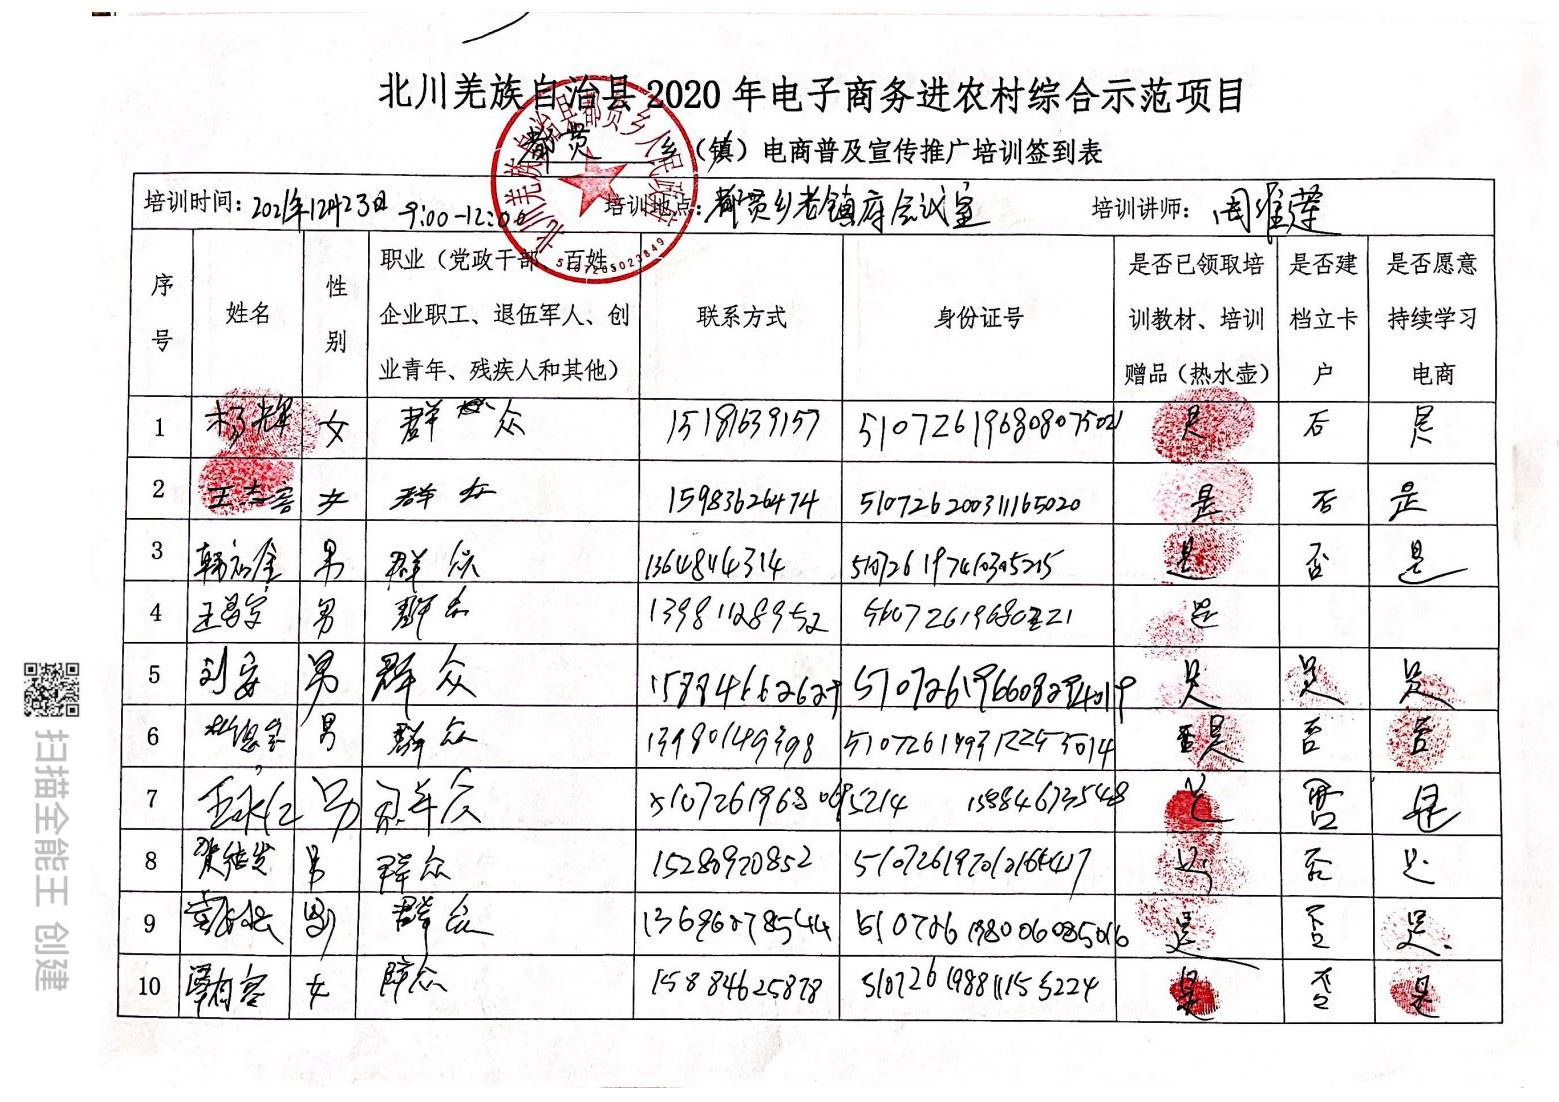 北川羌族自治县2020年电子商务进农村综合示范项目
都贯 乡（镇）电商普及宣传推广培训签到表
培训时间：2021年12月23日 9:00-12:00 培训地点：都贯乡老镇府会议室 培训讲师：周雅莲
序号 姓名 性别 职业（党政干部、百姓、企业职工、退伍军人、创业青年、残疾人和其他） 联系方式 身份证号 是否已领取培训教材、培训赠品（热水壶） 是否建档立卡户 是否愿意持续学习电商
1 杨辉 女 群众 15181639157 510726196808075021 是 否 是
2 女 群众 15983626474 510726200311165020 是 否 是
3 男 群众 是 否 是
4 男 群众 13981128952 是
5 刘安 男 群众 15884662629 是 是 是
6 男 群众 13980149398 是 否 否
7 王永仁 男 群众 510726196806095214 15884673548 是 否 是
8 男 群众 15280920852 是 否 是
9 男 群众 13696278544 510726198006085016 是 否 是
10 女 群众 15884625878 510726198811155224 是 否 是
北川羌族自治县都贯乡人民政府
5107265023849
扫描全能王 创建